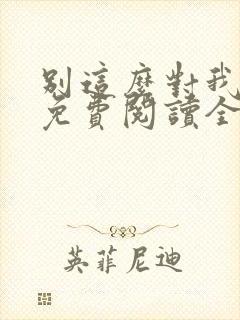 別這麼對我
免費閱讀全
英菲尼迪